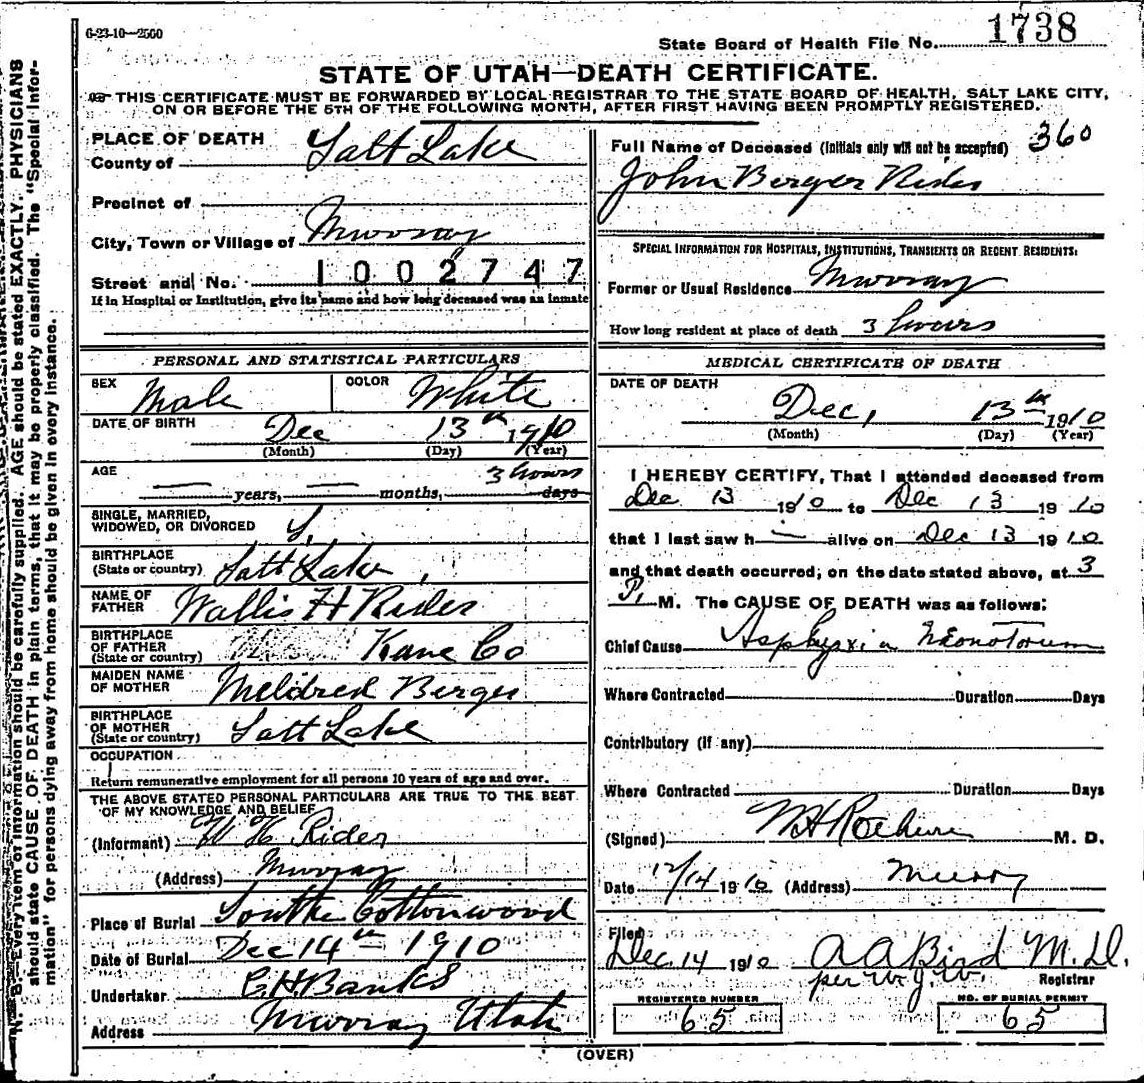 6-23-10—2500
State Board of Health File No. 1738
STATE OF UTAH—DEATH CERTIFICATE.
THIS CERTIFICATE MUST BE FORWARDED BY LOCAL REGISTRAR TO THE STATE BOARD OF HEALTH, SALT LAKE CITY,
ON OR BEFORE THE 5TH OF THE FOLLOWING MONTH, AFTER FIRST HAVING BEEN PROMPTLY REGISTERED.
N. B.—Every item of information should be carefully supplied. AGE should be stated EXACTLY. PHYSICIANS
should state CAUSE OF DEATH in plain terms, that it may be properly classified. The "Special Infor-
mation" for persons dying away from home should be given in every instance.
PLACE OF DEATH
County of Salt Lake
Precinct of
City, Town or Village of Murray
Street and No. 1002747
If in Hospital or Institution, give its name and how long deceased was an inmate
PERSONAL AND STATISTICAL PARTICULARS
SEX Male COLOR White
DATE OF BIRTH Dec 13th 1910
(Month) (Day) (Year)
AGE 3 hours
years, months, days
SINGLE, MARRIED,
WIDOWED, OR DIVORCED S,
BIRTHPLACE
(State or country) Salt Lake,
NAME OF
FATHER Wallis H Rider
BIRTHPLACE
OF FATHER
(State or country) Kane Co
MAIDEN NAME
OF MOTHER Meldred Berger
BIRTHPLACE
OF MOTHER
(State or country) Salt Lake
OCCUPATION
Return remunerative employment for all persons 10 years of age and over.
THE ABOVE STATED PERSONAL PARTICULARS ARE TRUE TO THE BEST
OF MY KNOWLEDGE AND BELIEF
(Informant) W H Rider
(Address) Murray
Place of Burial South Cottonwood
Date of Burial Dec 14th 1910
Undertaker C.H. Banks
Address Murray Utah
Full Name of Deceased (Initials only will not be accepted) 360
John Berger Rider
SPECIAL INFORMATION FOR HOSPITALS, INSTITUTIONS, TRANSIENTS OR RECENT RESIDENTS:
Former or Usual Residence Murray
How long resident at place of death 3 hours
MEDICAL CERTIFICATE OF DEATH
DATE OF DEATH
Dec, 13th 1910
(Month) (Day) (Year)
I HEREBY CERTIFY, That I attended deceased from
Dec 13 1910 to Dec 13 1910
that I last saw h — alive on Dec 13 1910
and that death occurred, on the date stated above, at 3
P. M. The CAUSE OF DEATH was as follows:
Chief Cause Asphyxia Neonatorum
Where Contracted Duration Days
Contributory (if any)
Where Contracted Duration Days
(Signed) M. D.
Date 12/14 1910 (Address) Murry
Filed
Dec. 14 1910 A A Bird M.D.
per W. J. W. Registrar
REGISTERED NUMBER NO. OF BURIAL PERMIT
65 65
(OVER)